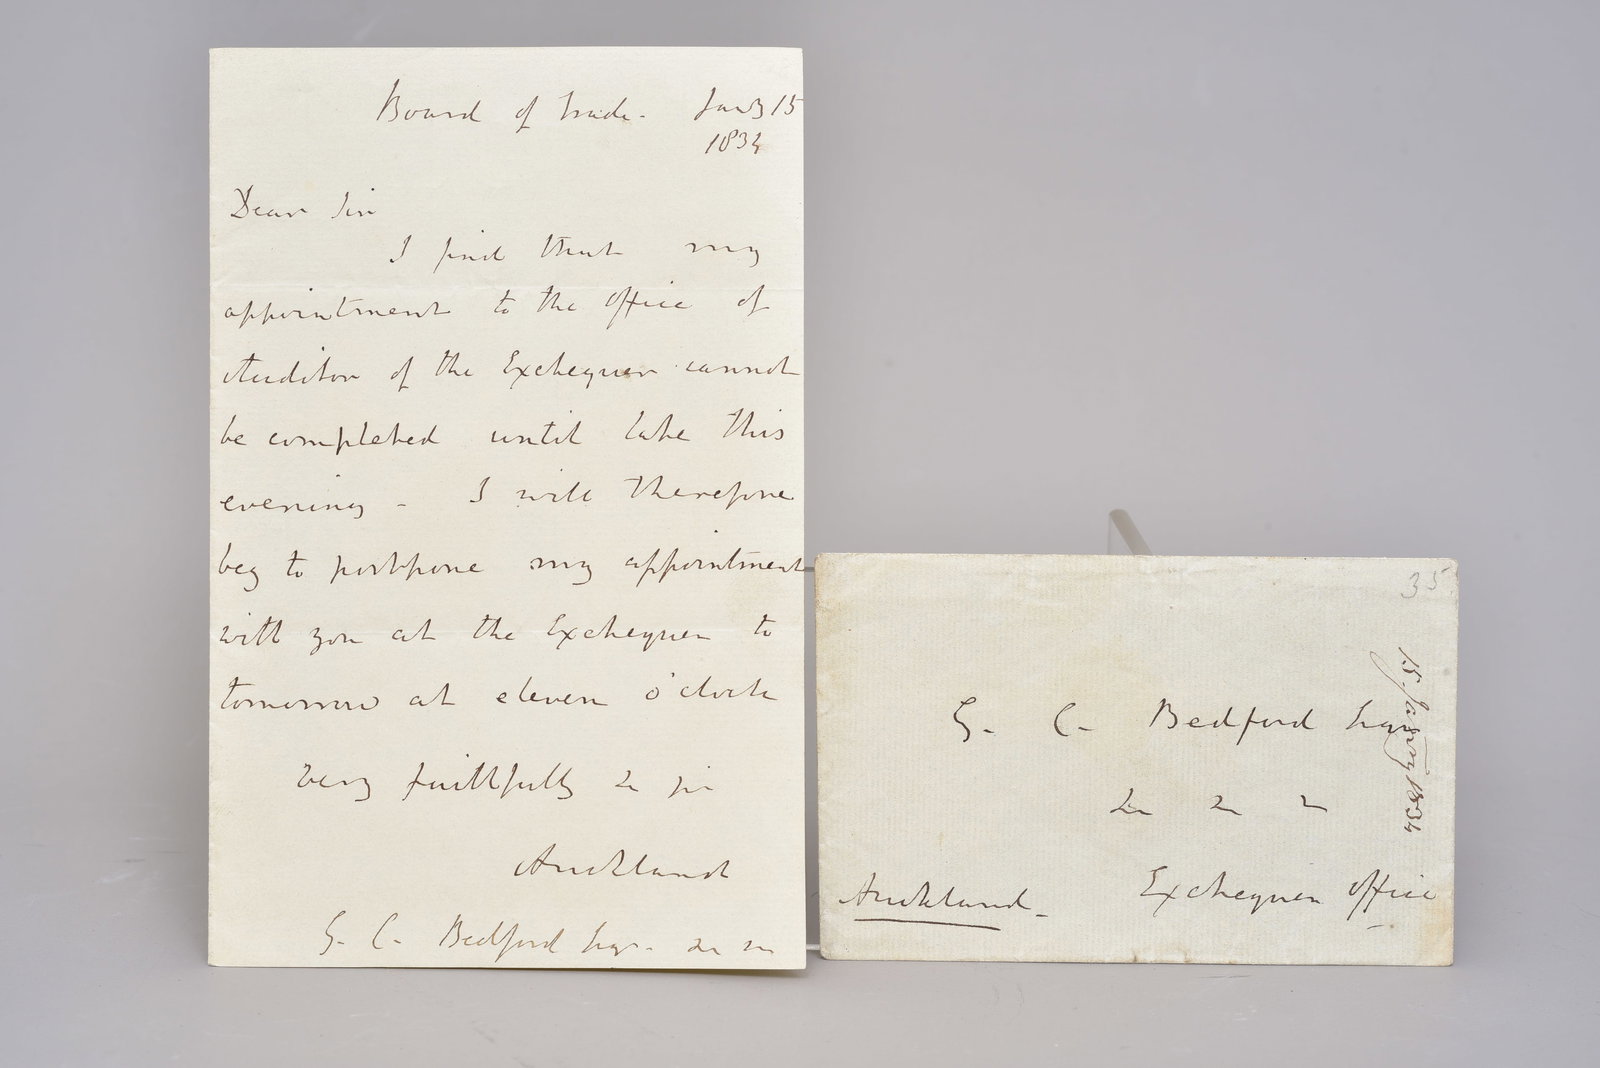 Board of Trade. Jany 15
1834
Dear Sir
I find that my
appointment to the office of
Auditor of the Exchequer cannot
be completed until late this
evening - I will therefore
beg to postpone my appointment
with you at the Exchequer to
tomorrow at eleven o'clock
very faithfully
Auckland
G. C. Bedford Esqr.
35
15 Jany 1834
G. C. Bedford Esqr
Auckland
Exchequer Office